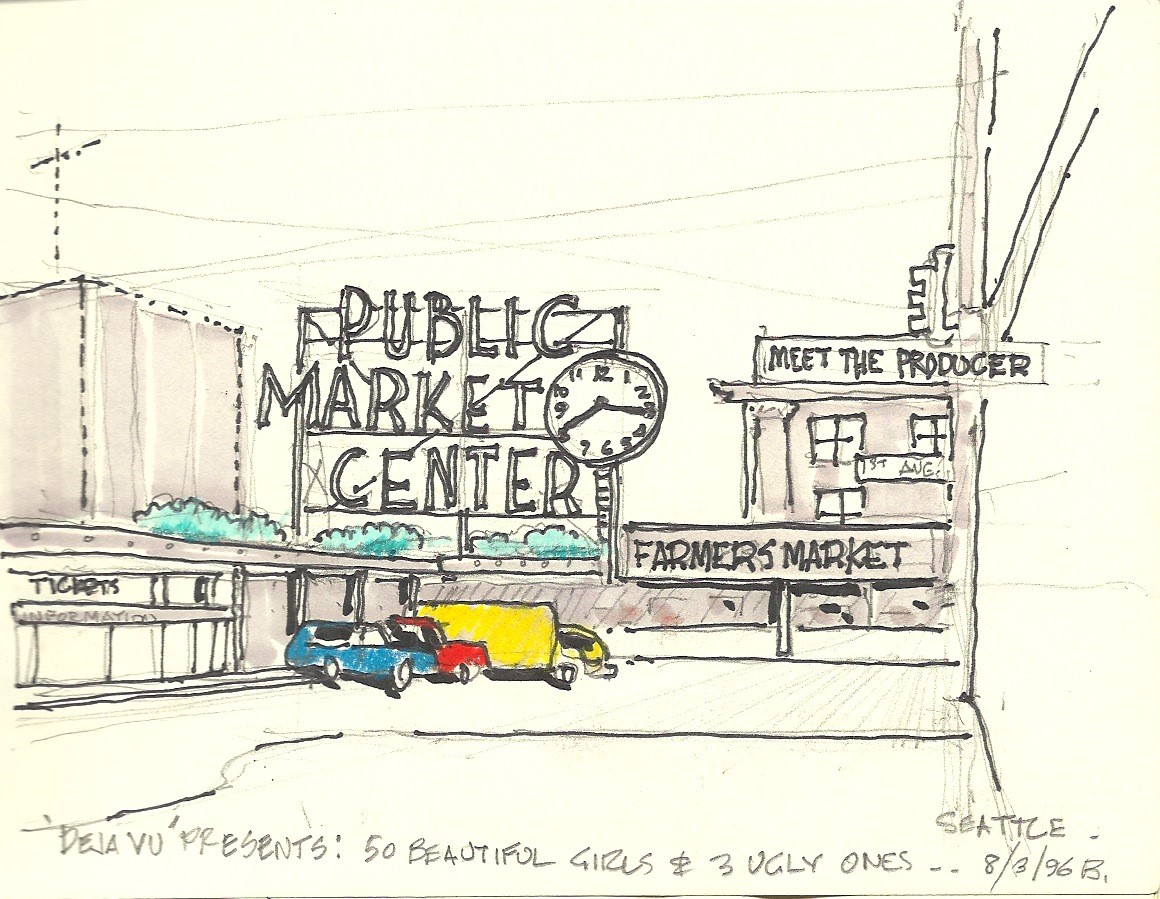 PUBLIC
MARKET
CENTER
12 1 2 3 4 5 6 7 8 9 10 11
MEET THE PRODUCER
1ST AVE.
FARMERS MARKET
TICKETS
INFORMATION
SEATTLE -
"DEJA VU" PRESENTS: 50 BEAUTIFUL GIRLS & 3 UGLY ONES -- 8/3/96 B.